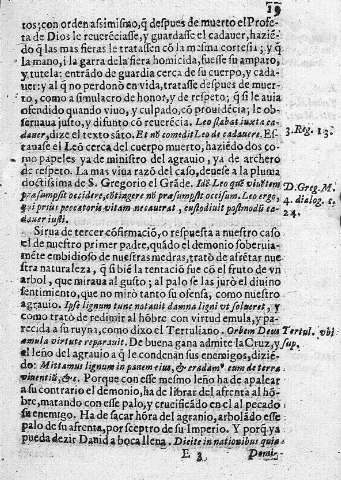 19
tos; con orden assimismo, q̃ despues de muerto el Profe-
ta de Dios le reuerēciasse, y guardasse el cadauer, haziē-
do q̃ las mas fieras le tratassen cō la mesma cortesia; y q̃
la mano, i la garra de la fiera homicida, fuesse su amparo,
y tutela: entrādo de guardia cerca de su cuerpo, y cada-
uer: y al q̃ no perdonò en vida, tratasse despues de muer-
to, como a simulacro de honor, y de respeto; q̃ si le auia
ofendido quando viuo, y culpado, cō prouidēcia; le ob-
seruaua justo, y difunto cō reuerēcia. Leo stabat iuxta ca-
dauer, dize el texto sāto. Et nō comedit Leo de cadauere. Es-
3. Reg. 13.
tauase el Leō cerca del cuerpo muerto, haziēdo dos co-
mo papeles ya de ministro del agrauio, ya de archero
de respeto. La mas viua razō del caso, deuese a la pluma
doctissima de S. Gregorio el Grāde. Ideò Leo quē viuētem
præsumpsit occidere, cōtingere nō præsumpsit occisum. Leo ergo,
D. Greg. M.
4. dialog. c.
24.
qui prius peccatoris vitam necauerat, custodiuit postmodū ca-
dauer iusti.
Sirua de tercer cōfirmaciō, o respuesta a nuestro caso
el de nuestro primer padre, quādo el demonio soberuia-
mēte embidioso de nuestras medras, tratò de afectar nues-
tra naturaleza, q̃ si biē la tentaciō fue cō el fruto de vn
arbol, que miraua al gusto; al palo se las jurò el diuino
sentimiento, que no mirò tanto su ofensa, como nuestro
agrauio. Ipse lignum tunc notauit damna ligni vt solueret, y
como tratò de redimir al hōbre con virtud emula, y pa-
recida a su ruyna, como dixo el Tertuliano. Orbem Deus
Tertul. vbi
sup.
æmula virtute reparauit. De buena gana admite la Cruz, y
el leño del agrauio a q̃ le condenan sus enemigos, diziē-
do: Mittamus lignum in panem eius, & eradamꝰ eum de terra
viuentiū, &c. Porque con esse mesmo leño ha de apalear
a su contrario el demonio, ha de librar del afrenta al hō-
bre, matando con esse palo, y crucificādo en el al pecado
su enemigo. Ha de sacar hōra del agrauio, arbolādo esse
palo de su afrenta, por sceptro de su Imperio. Y porq̃ ya
pueda dezir Dauid a boca llena. Dicite in nationibus quia
E 3.
Domi-